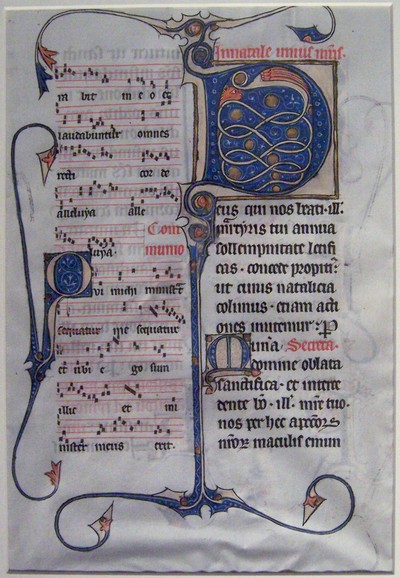 ra bit in e o et
laudabuntur omnes
recti cor de
alleluya alle
luya. Com
munio
Qui michi ministrat
me sequatur me sequatur
et ubi ego sum
illic et mi
nister meus erit.
In natale unius mris.
Deus qui nos beati .ill.
martyris tui annua
sollempnitate letifi
cas. concede propiti
ut cuius natalicia
colimus. etiam acti
ones imitemur: P
Munera Secreta
domine oblata
sanctifica. et interce
dente bo .ill. mre tuo.
nos per hec a pccorum
nror maculis emun